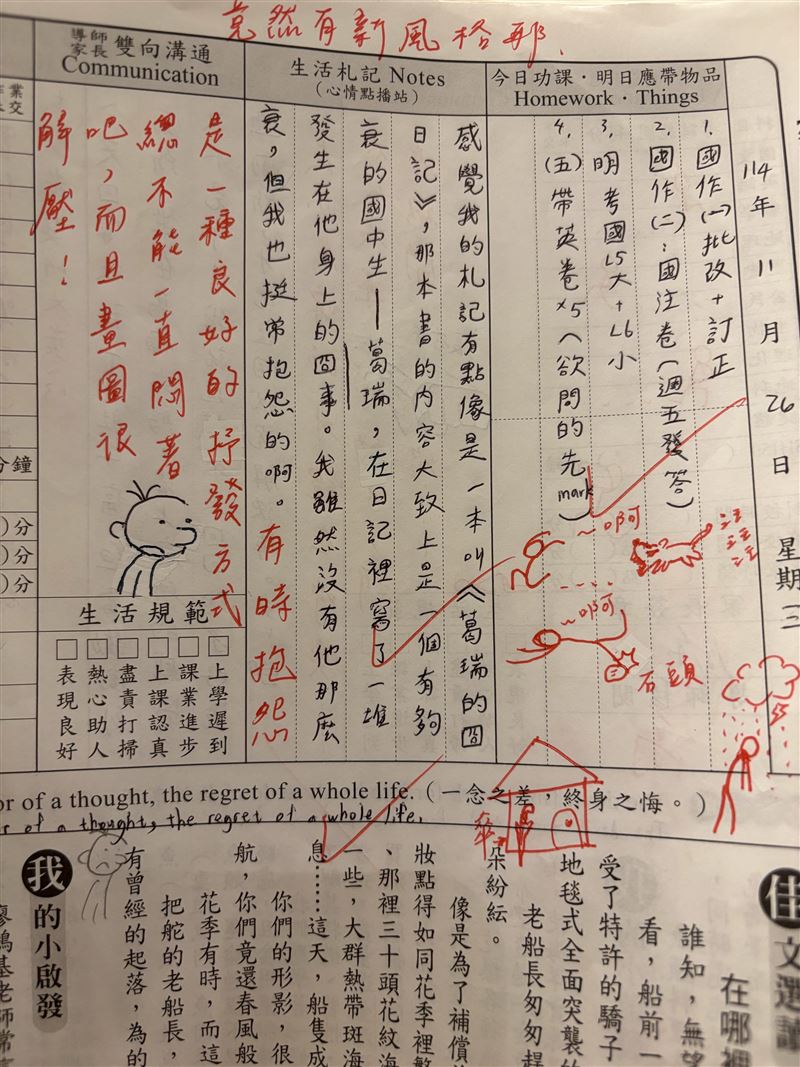 竟然有新風格耶.
今日功課・明日應帶物品
Homework・Things
生活札記 Notes
(心情點播站)
導師
家長
雙向溝通
Communication
114年11月26日 星期三
1. 國作(一)批改+訂正
2. 國作(二):國注卷(週五發答)
3. 明考國L5大+L6小
4. (五)帶英卷×5(欲問的先mark)
感覺我的札記有點像是一本叫《葛瑞的囧
日記》,那本書的內容大致上是一個有夠
衰的國中生—葛瑞,在日記裡寫了一堆
發生在他身上的囧事。我雖然沒有他那麼
衰,但我也挺常抱怨的啊。有時抱怨
是一種良好的抒發方式
總不能一直悶著
吧,而且畫圖很
解壓!
~啊
汪汪汪
~啊
石頭
傘
生活規範
上學遲到
課業進步
上課認真
盡責打掃
熱心助人
表現良好
分鐘
)分
)分
)分
or of a thought, the regret of a whole life.(一念之差,終身之悔。)
r of a thought, the regret of a whole life.
佳文選讀
在哪裡
誰知,無望
看,船前一
受了特許的驕子
地毯式全面突襲的
老船長匆匆趕
朵紛紜。
像是為了補償
妝點得如同花季裡繁
、那裡三十頭花紋海
一些,大群熱帶斑海
息……這天,船隻成
你們的形影,很
航,你們竟還春風般
花季有時,而這
把舵的老船長,
有曾經的起落,為的
我的小啟發
廖鴻基老師常